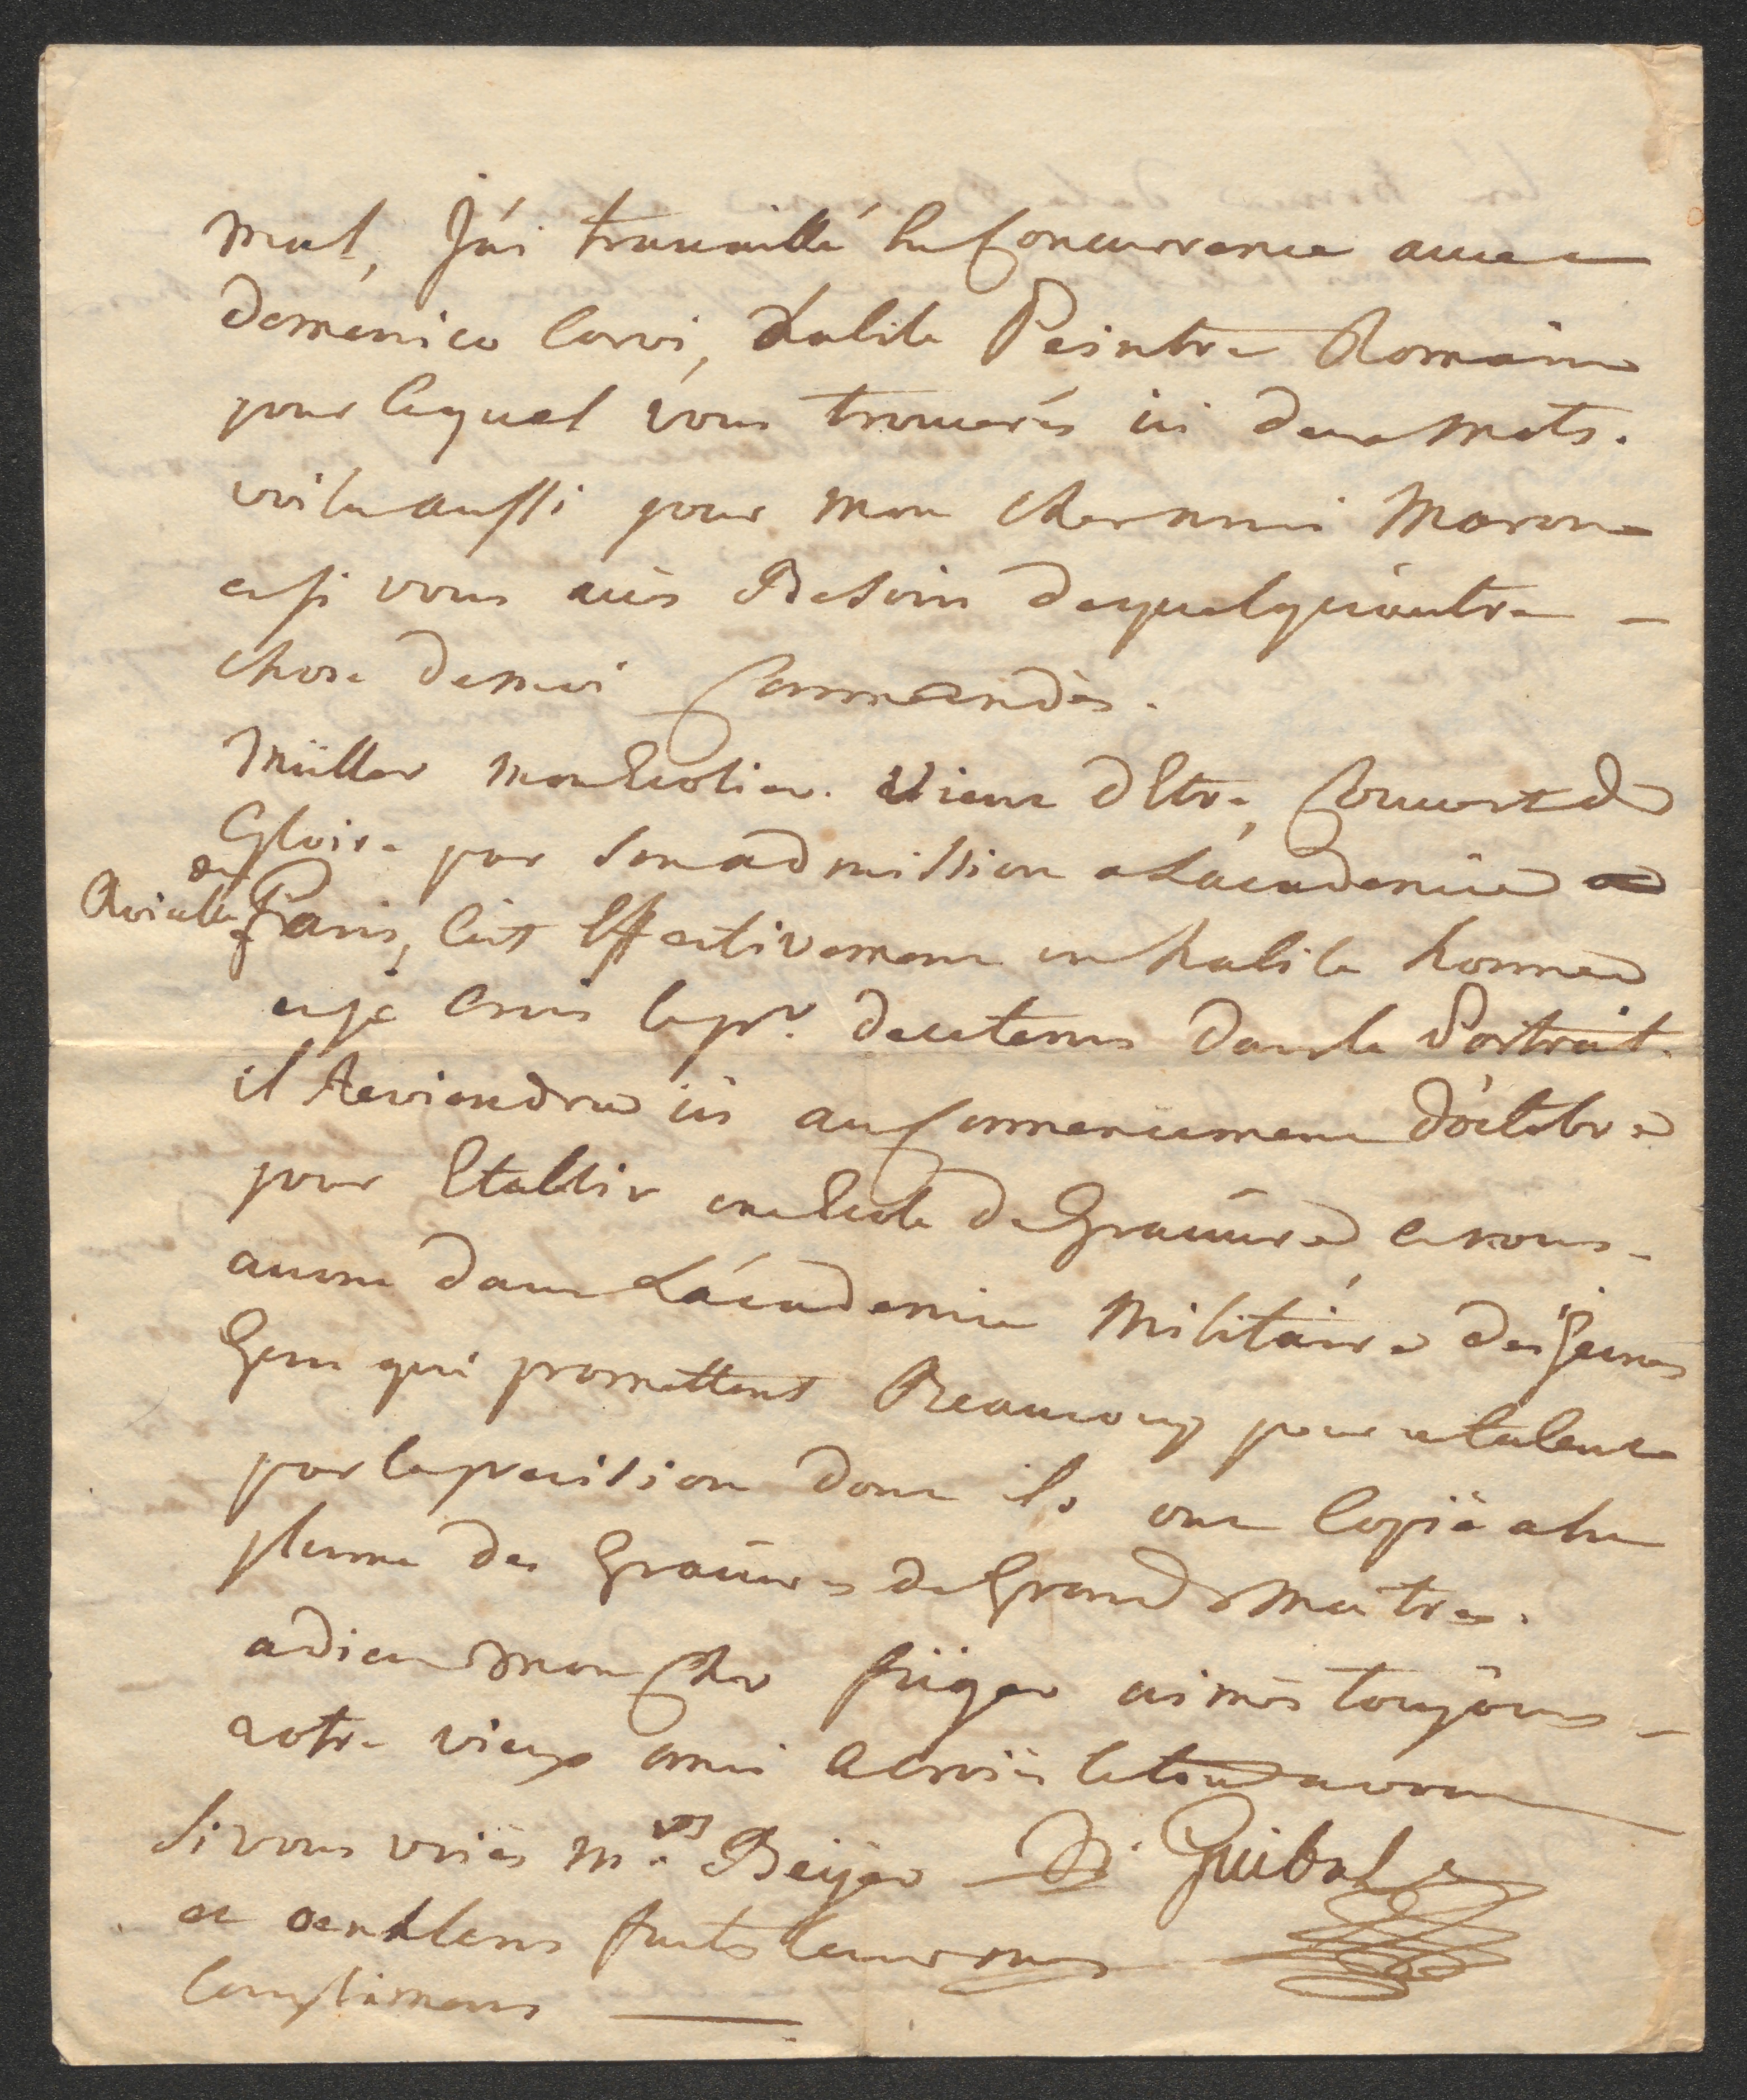 mal, J'ai travaillé la Concurrence avec
Domenico Corvi, d'habile Peintre Romain
pour lequel vous trouverés ici deux mots.
voila aussi pour mon cher ami Maron
et si vous avés Besoin de quelqu'autre
chose de moi Commandés.
Müller mon Ecolier. Vient d'Etre, Couvert de
Gloire par son admission a L'académie
Roialle de Paris, C'est Effectivement un habile homme
et je crois le pr. de ce tems dans le Portrait.
il Reviendra ici au Commencement d'octobre
pour Etablir une Ecole de Gravüre et nous
avons dans L'académie Militaire des jeunes
Gens qui promettent Beaucoup pour ce talent
par la precision dont ils ont Copié a la
plume des Gravüres de Grands Maitres.
adieu mon Cher füger aimés toujours
votre vieux ami et croiés le tout a vous
Si vous voiés Mrs Beijer N. Guibal
et faits leur mes
Complimens